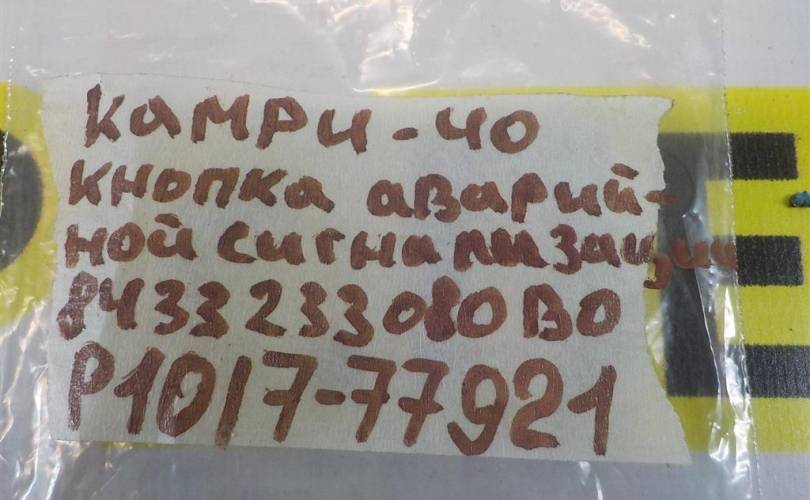 Камри-40
кнопка аварий-
ной сигнализации
8433233080B0
P1017-77921